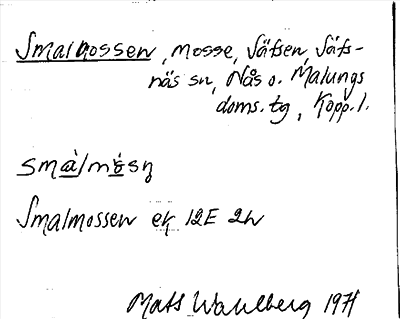 Smalmossen, mosse, Säfsen, Säfs-
näs sn, Nås o. Malungs
doms. tg, Kopp. l.
smà̱lmò̱sṇ
Smalmossen ek 12E 2h
Mats Wahlberg 1971